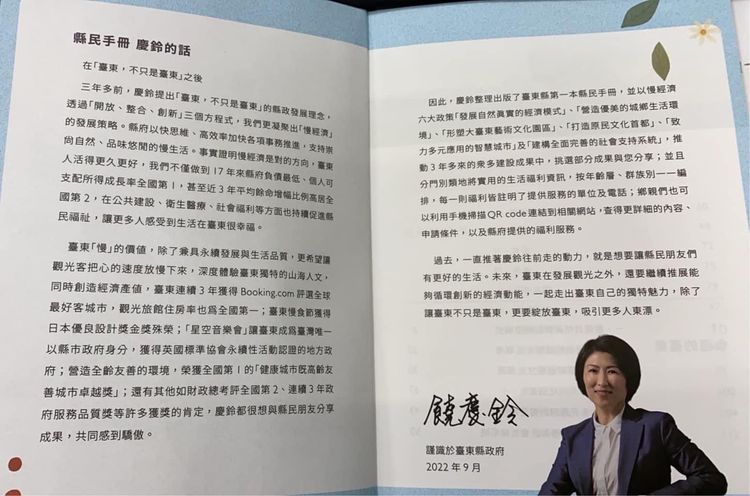 縣民手冊 慶鈴的話
在「臺東,不只是臺東」之後
三年多前,慶鈴提出「臺東,不只是臺東」的縣政發展理念,
透過「開放、整合、創新」三個方程式,我們更凝聚出「慢經濟」
的發展策略。縣府以快思維、高效率加快各項事務推進,支持崇
尚自然、品味悠閒的慢生活。事實證明慢經濟是對的方向,臺東
人活得更久更好,我們不僅做到 17 年來縣府負債最低、個人可
支配所得成長率全國第 1,甚至近 3 年平均餘命增幅比例高居全
國第 2,在公共建設、衛生醫療、社會福利等方面也持續促進縣
民福祉,讓更多人感受到生活在臺東很幸福。
臺東「慢」的價值,除了兼具永續發展與生活品質,更希望讓
觀光客把心的速度放慢下來,深度體驗臺東獨特的山海人文,
同時創造經濟產值,臺東連續 3 年獲得 Booking.com 評選全球
最好客城市,觀光旅館住房率也為全國第一;臺東慢食節獲得
日本優良設計獎金獎殊榮;「星空音樂會」讓臺東成為臺灣唯一
以縣市政府身分,獲得英國標準協會永續性活動認證的地方政
府;營造全齡友善的環境,榮獲全國第 1 的「健康城市既高齡友
善城市卓越獎」;還有其他如財政總考評全國第 2、連續 3 年政
府服務品質獎等許多獲獎的肯定,慶鈴都很想與縣民朋友分享
成果,共同感到驕傲。
因此,慶鈴整理出版了臺東縣第一本縣民手冊,並以慢經濟
六大政策「發展自然真實的經濟模式」、「營造優美的城鄉生活環
境」、「形塑大臺東藝術文化園區」、「打造原民文化首都」、「致
力多元應用的智慧城市」及「建構全面完善的社會支持系統」,推
動 3 年多來的眾多建設成果中,挑選部分成果與您分享;並且
分門別類地將實用的生活福利資訊,按年齡層、群族別一一編
排,每一則福利皆註明了提供服務的單位及電話;鄉親們也可
以利用手機掃描 QR code 連結到相關網站,查得更詳細的內容、
申請條件,以及縣府提供的福利服務。
過去,一直推著慶鈴往前走的動力,就是想要讓縣民朋友們
有更好的生活。未來,臺東在發展觀光之外,還要繼續推展能
夠循環創新的經濟動能,一起走出臺東自己的獨特魅力,除了
讓臺東不只是臺東,更要綻放臺東,吸引更多人東漂。
饒慶鈴
謹識於臺東縣政府
2022 年 9 月